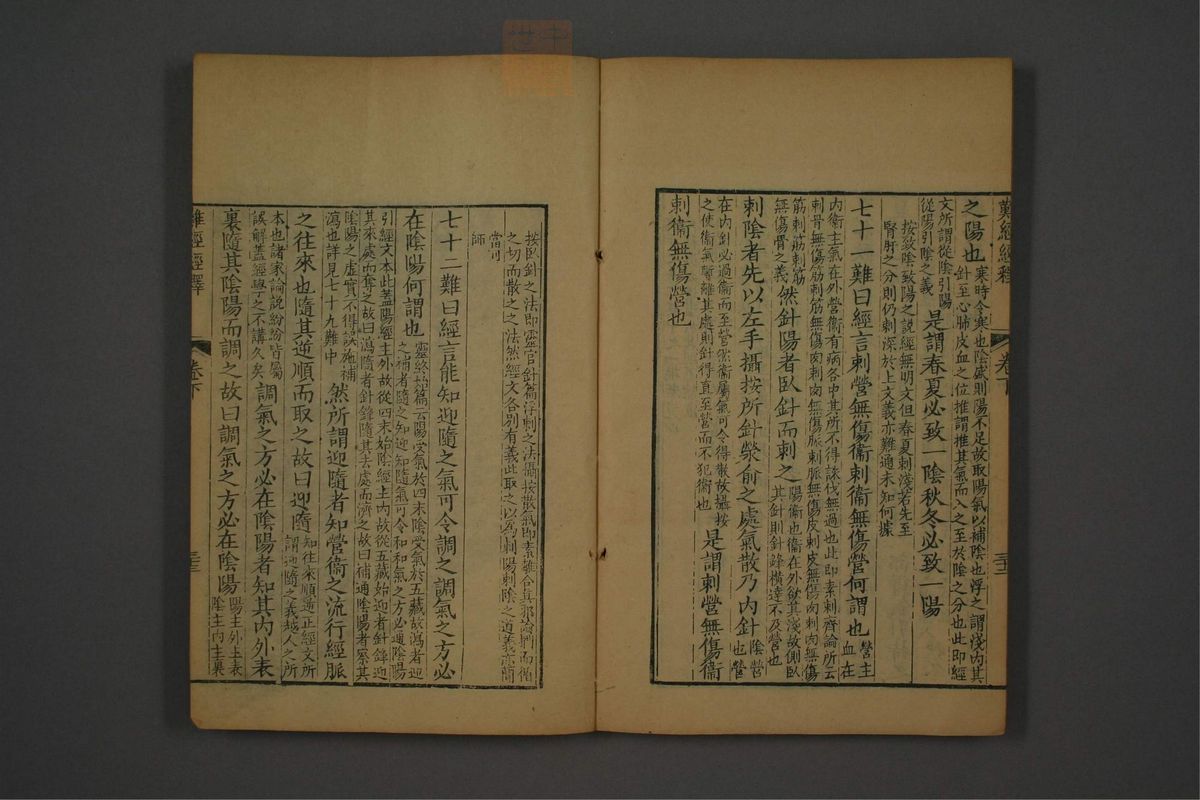 難經經釋
卷下
三十二
之陽也寒時令寒也陰處則陽不足故取陽氣以補陰也浮之謂淺內其
針至心肺皮血之位推謂推其氣而入之至於陰之分也此即經
文所謂從陰引陽
從陽引陰之義
是謂春夏必致一陰秋冬必致一陽
按致陰致陽之說經無明文但春夏刺淺若先至
腎肝之分則仍刺深於上文義亦難通未知何據
七十一難曰經言刺營無傷衞刺衞無傷營何謂也營主
血在
內衞主氣在外營衞有病各中其所不得誅伐無過也此即素刺齊論所云
刺骨無傷筋刺筋無傷肉刺肉無傷脈刺脈無傷皮刺皮無傷肉刺肉無傷
筋刺筋刺筋
無傷骨之義
然針陽者臥針而刺之
陽衞也衞在外欲其淺故側臥
其針則針鋒橫達不及營也
刺陰者先以左手攝按所針滎俞之處氣散乃內針陰營
也營
在內針必過衞而至營然衞屬氣可令得散故攝按
之使衞氣暫離其處則針得直至營而不犯衞也
是謂刺營無傷衞
刺衞無傷營也
按臥針之法即靈官針篇浮刺之法攝按散氣即素離合真邪論捫而循
之切而散之之法然經文各別有義此取之以為刺陽刺陰之道義
簡
當可
師
七十二難曰經言能知迎隨之氣可令調之調氣之方必
在陰陽何謂也
靈終始篇云陽受氣於四末陰受氣於五藏故瀉者迎
之補者隨之知迎知隨氣可令和和氣之方必通陰陽
引經文本此蓋陽經主外故從四末始陰經主內故從五藏始迎者針鋒迎
其來處而奪之故曰瀉隨者針鋒隨其去處而濟之故曰補通陰陽者察其
陰陽之虛實不得誤施補
瀉也詳見七十九難中
然所謂迎隨者知營衞之流行經脈
之往來也隨其逆順而取之故曰迎隨
知往來順逆正經文所
謂迎隨之義越人之所
本也諸家論說紛紛皆屬
誤解蓋經學之不講久矣
調氣之方必在陰陽者知其內外表
裏隨其陰陽而調之故曰調氣之方必在陰陽
陽主外主表
陰主內主裏
難經經釋
卷下
三十三